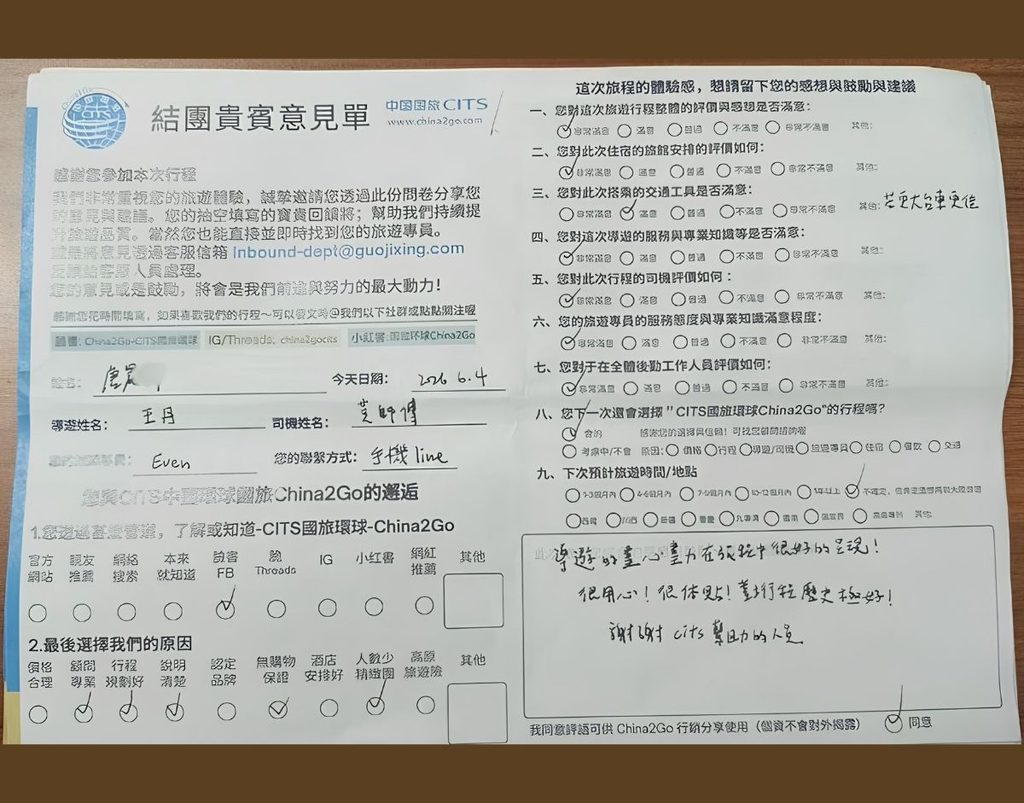 結團貴賓意見單
中国国旅 CITS
www.china2go.com
感謝您參加本次行程
我們非常重視您的旅遊體驗，誠摯邀請您透過此份問卷分享您
的意見與建議。您的抽空填寫的寶貴回饋將；幫助我們持續提
升旅遊品質。當然您也能直接並即時找到您的旅遊專員。
或是將意見透過客服信箱 Inbound-dept@guojixing.com
反饋給客服人員處理。
您的意見或是鼓勵，將會是我們前進與努力的最大動力！
感謝您花時間填寫，如果喜歡我們的行程～可以發文時@我們以下社群或點點關注喔
臉書：China2Go-CITS國旅環球 IG/Threads: china2gocits 小紅書:国旅环球China2Go
姓名： 唐 今天日期： 2026 6.4
導遊姓名： 王丹 司機姓名： 師傅
Even 您的聯繫方式： 手機 line
您與CITS中國環球國旅China2Go的邂逅
1.您透過甚麼管道，了解或知道-CITS國旅環球-China2Go
官方網站 親友推薦 網絡搜索 本來就知道 臉書FB 脆Threads IG 小紅書 網紅推薦 其他
2.最後選擇我們的原因
價格合理 顧問專業 行程規劃好 說明清楚 認定品牌 無購物保證 酒店安排好 人數少精緻團 高原旅遊險 其他
這次旅程的體驗感，懇請留下您的感想與鼓勵與建議
一、您對這次旅遊行程整體的評價與感想是否滿意：
非常滿意 滿意 普通 不滿意 非常不滿意 其他：
二、您對此次住宿的旅館安排的評價如何：
非常滿意 滿意 普通 不滿意 非常不滿意 其他：
三、您對此次搭乘的交通工具是否滿意：
非常滿意 滿意 普通 不滿意 非常不滿意 其他： 若更大台車更佳
四、您對這次導遊的服務與專業知識等是否滿意：
非常滿意 滿意 普通 不滿意 非常不滿意 其他：
五、您對此次行程的司機評價如何：
非常滿意 滿意 普通 不滿意 非常不滿意 其他：
六、您的旅遊專員的服務態度與專業知識滿意程度：
非常滿意 滿意 普通 不滿意 非常不滿意 其他：
七、您對于在全體後勤工作人員評價如何：
非常滿意 滿意 普通 不滿意 非常不滿意 其他：
八、您下一次還會選擇 "CITS國旅環球China2Go"的行程嗎？
會的 感謝您的選擇與信賴！可找您顧問諮詢喔
考慮中/不會 原因： 價格 行程 導遊/司機 旅遊專員 住宿 餐飲 交通
九、下次預計旅遊時間/地點
1-3個月內 4-6個月內 7-9個月內 10-12個月內 1年以上 不確定，
西藏 川西 新疆 重慶 九寨溝 雲南 張家界 其他：
導遊的盡心盡力在旅程中很好的呈現！
很用心！很体貼！對行程歷史極好！
謝謝 cits 幫助的人員
我同意評語可供 China2Go 行銷分享使用（個資不會對外揭露） 同意